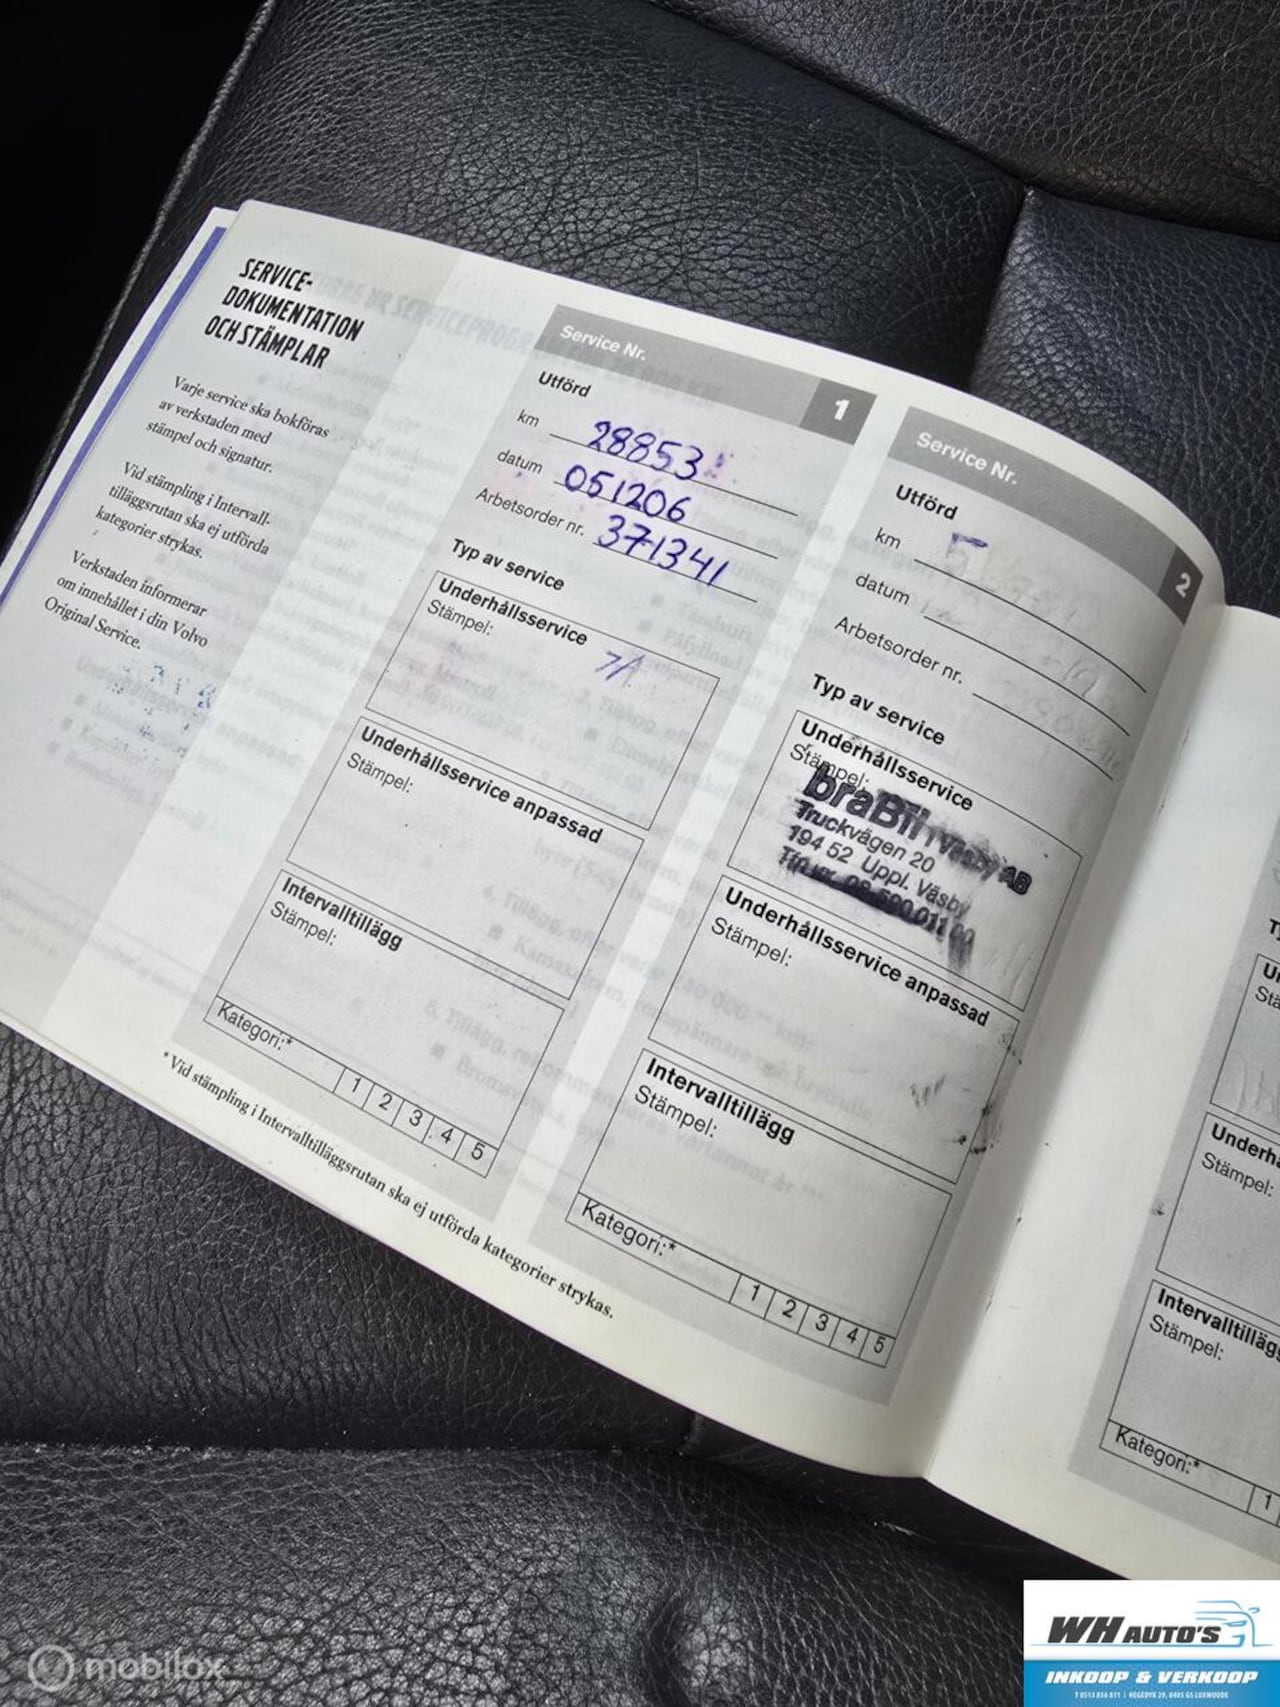 SERVICE-
DOKUMENTATION
OCH STÄMPLAR
Varje service ska bokföras
av verkstaden med
stämpel och signatur.
Vid stämpling i Intervall-
tilläggsrutan ska ej utförda
kategorier strykas.
Verkstaden informerar
om innehållet i din Volvo
Original Service.
Service Nr.
1
Utförd
km 28853
datum 051206
Arbetsorder nr. 371341
Typ av service
Underhållsservice
Stämpel:
Underhållsservice anpassad
Stämpel:
Intervalltillägg
Stämpel:
Kategori:* 1 2 3 4 5
* Vid stämpling i Intervalltilläggsrutan ska ej utförda kategorier strykas.
Service Nr.
2
Utförd
km
datum
Arbetsorder nr.
Typ av service
Underhållsservice
Stämpel:
braBil i Väsby AB
Truckvägen 20
194 52 Uppl. Väsby
Underhållsservice anpassad
Stämpel:
Intervalltillägg
Stämpel:
Kategori:* 1 2 3 4 5
Stämpel:
Intervalltillägg
Stämpel:
Kategori:* 1
mobilox
WH AUTO'S
INKOOP & VERKOOP
T 0513 856 811 | HEGEDYK 29, 8405 GS LUXWOUDE